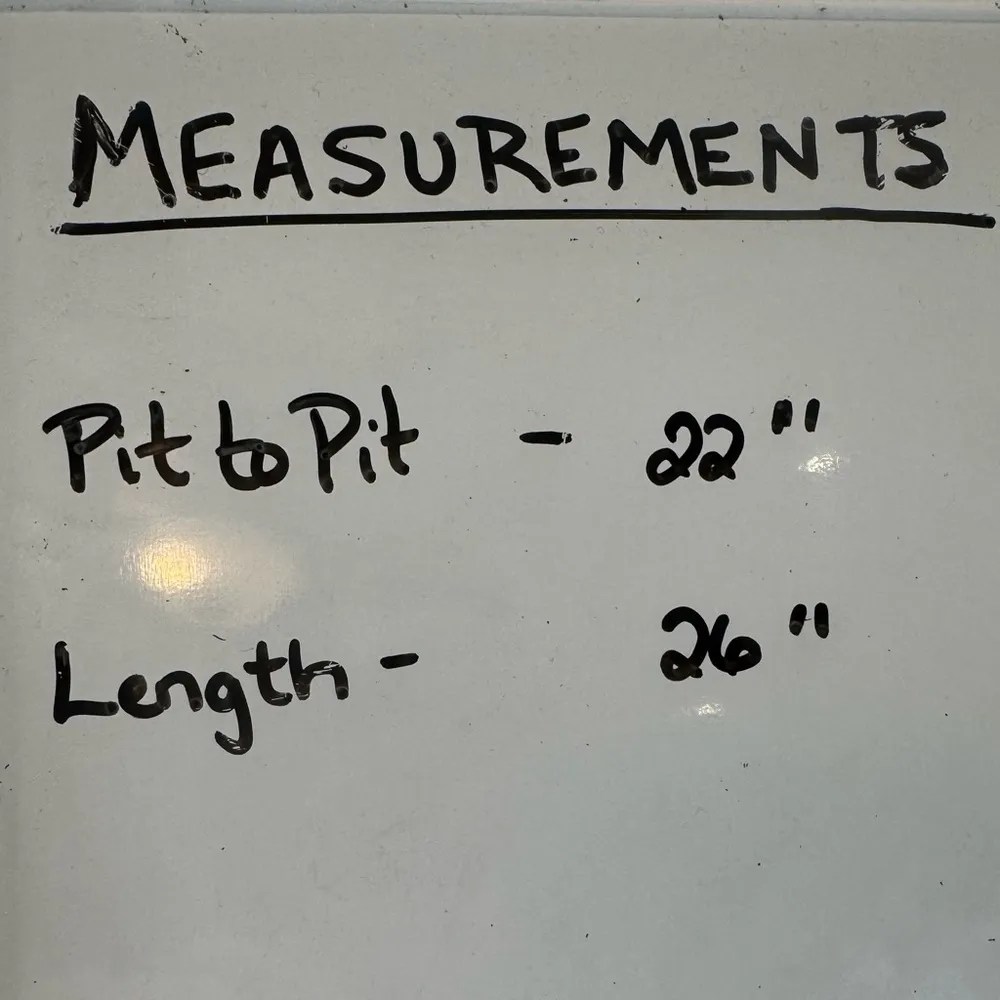 MEASUREMENTS
Pit to Pit - 22"
Length - 26"